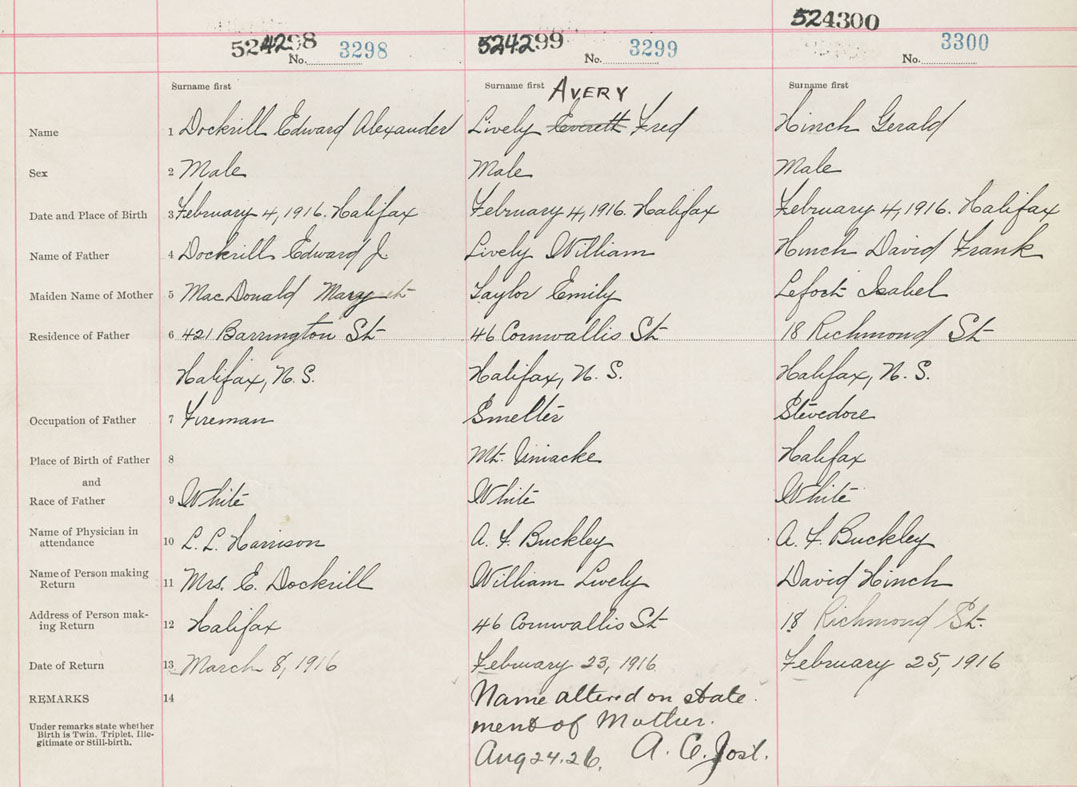 524298
No. 3298
524299
No. 3299
524300
No. 3300
Surname first
Surname first AVERY
Surname first
Name 1 Dockrill Edward Alexander Lively Everett Fred Hinch Gerald
Sex 2 Male Male Male
Date and Place of Birth 3 February 4, 1916. Halifax February 4, 1916. Halifax February 4, 1916. Halifax
Name of Father 4 Dockrill Edward J Lively William Hinch David Frank
Maiden Name of Mother 5 MacDonald Mary Taylor Emily Lefort Isabel
Residence of Father 6 421 Barrington St 46 Cornwallis St 18 Richmond St
Halifax, N.S. Halifax, N.S. Halifax, N.S.
Occupation of Father 7 Fireman Smelter Stevedore
Place of Birth of Father 8 Mt. Uniacke Halifax
and
Race of Father 9 White White White
Name of Physician in
attendance 10 L. L. Harrison A. F. Buckley A. F. Buckley
Name of Person making
Return 11 Mrs. E. Dockrill William Lively David Hinch
Address of Person mak-
ing Return 12 Halifax 46 Cornwallis St 18 Richmond St.
Date of Return 13 March 8, 1916 February 23, 1916 February 25, 1916
REMARKS 14 Name altered on state
ment of Mother.
Under remarks state whether
Birth is Twin. Triplet, Ille-
gitimate or Still-birth.
Aug 24.26. A. E. Jost.